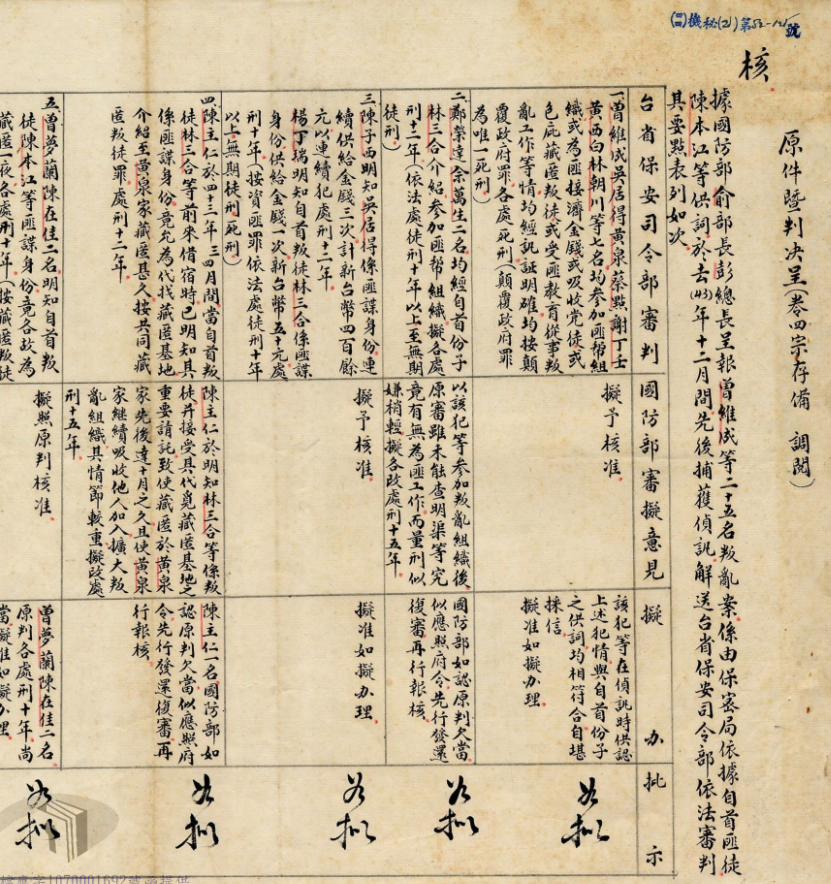 (二)機秘(乙)第52-12號
核
原件暨判决呈卷四宗存備 調閱）
據國防部俞部長彭總長呈報曾維成等二十五名叛亂案係由保密局依據自首匪徒
陳本江等供詞於去(43)年十二月間先後捕獲偵訊解送台省保安司令部依法審判
其要點表列如次
台省保安司令部審判
國防部審擬意見
擬 办
批 示
一曾維成吳居得黃泉蔡興謝丁壬
黃西白林朝川等七名均參加匪幫組
織或為匪接濟金錢或吸收党徒或
包庇藏匿叛徒或受匪教育從事叛
亂工作等情均經訊証明確均按顛
覆政府罪各處死刑（顛覆政府罪
為唯一死刑）
擬予核准
該犯等在偵訊時供認
上述犯情與自首份子
之供詞均相符合自堪
採信
擬准如擬办理
如擬
二鄭榮達余萬生二名均經自首份子
林三合介紹參加匪幫組織擬各處
刑十二年（依法處徒刑十年以上至無期
徒刑）
以該犯等參加叛亂組織後
原審雖未能查明渠等究
竟有無為匪工作而量刑似
嫌稍輕擬各改處刑十五年
國防部如認原判欠當
似應照府令先行發還
復審再行報核
如擬
三陳子西明知吳居得係匪諜身份連
續供給金錢三次計新台幣四百餘
元以連續犯處刑十二年
楊丁瑞明知自首叛徒林三合係匪諜
身份供給金錢一次新台幣五十元處
刑十年（按資匪罪依法處徒刑十年
以上無期徒刑死刑）
擬予核准
擬准如擬办理
如擬
四陳主仁於四十三年三四月間當自首叛
徒林三合等前來借宿時已明知其
係匪諜身份竟允為代找藏匿基地
介紹至黃泉家藏匿甚久按共同藏
匿叛徒罪處刑十二年
陳主仁於明知林三合等係叛
徒并接受其代覓藏匿基地之
重要請託致使藏匿於黃泉
家先後達十月之久且使黃泉
家繼續吸收他人加入擴大叛
亂組織其情節較重擬改處
刑十五年
陳主仁一名國防部如
認原判欠當似應照府
令先行發還復審再
行報核
如擬
五曾夢蘭陳在佳二名明知自首叛
徒陳本江等匪諜身份竟各故為
藏匿一夜各處刑十年（按藏匿叛徒
擬照原判核准
曾夢蘭陳在佳二名
原判各處刑十年尚
當擬准如擬办理
如擬
檔應字1070001692號函提供